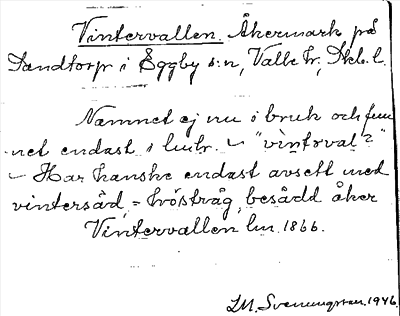 Vintervallen. Åkermark på
Sandtorp i Eggby s:n, Valle hr, Skb. l.
Namnet ej nu i bruk och fun-
net endast i lmhr. ~ "vintərval?"
~ Har kanske endast avsett med
vintersäd, = höstråg, besådd åker
Vintervallen lm. 1866.
I.M. Svenungsson. 1946.